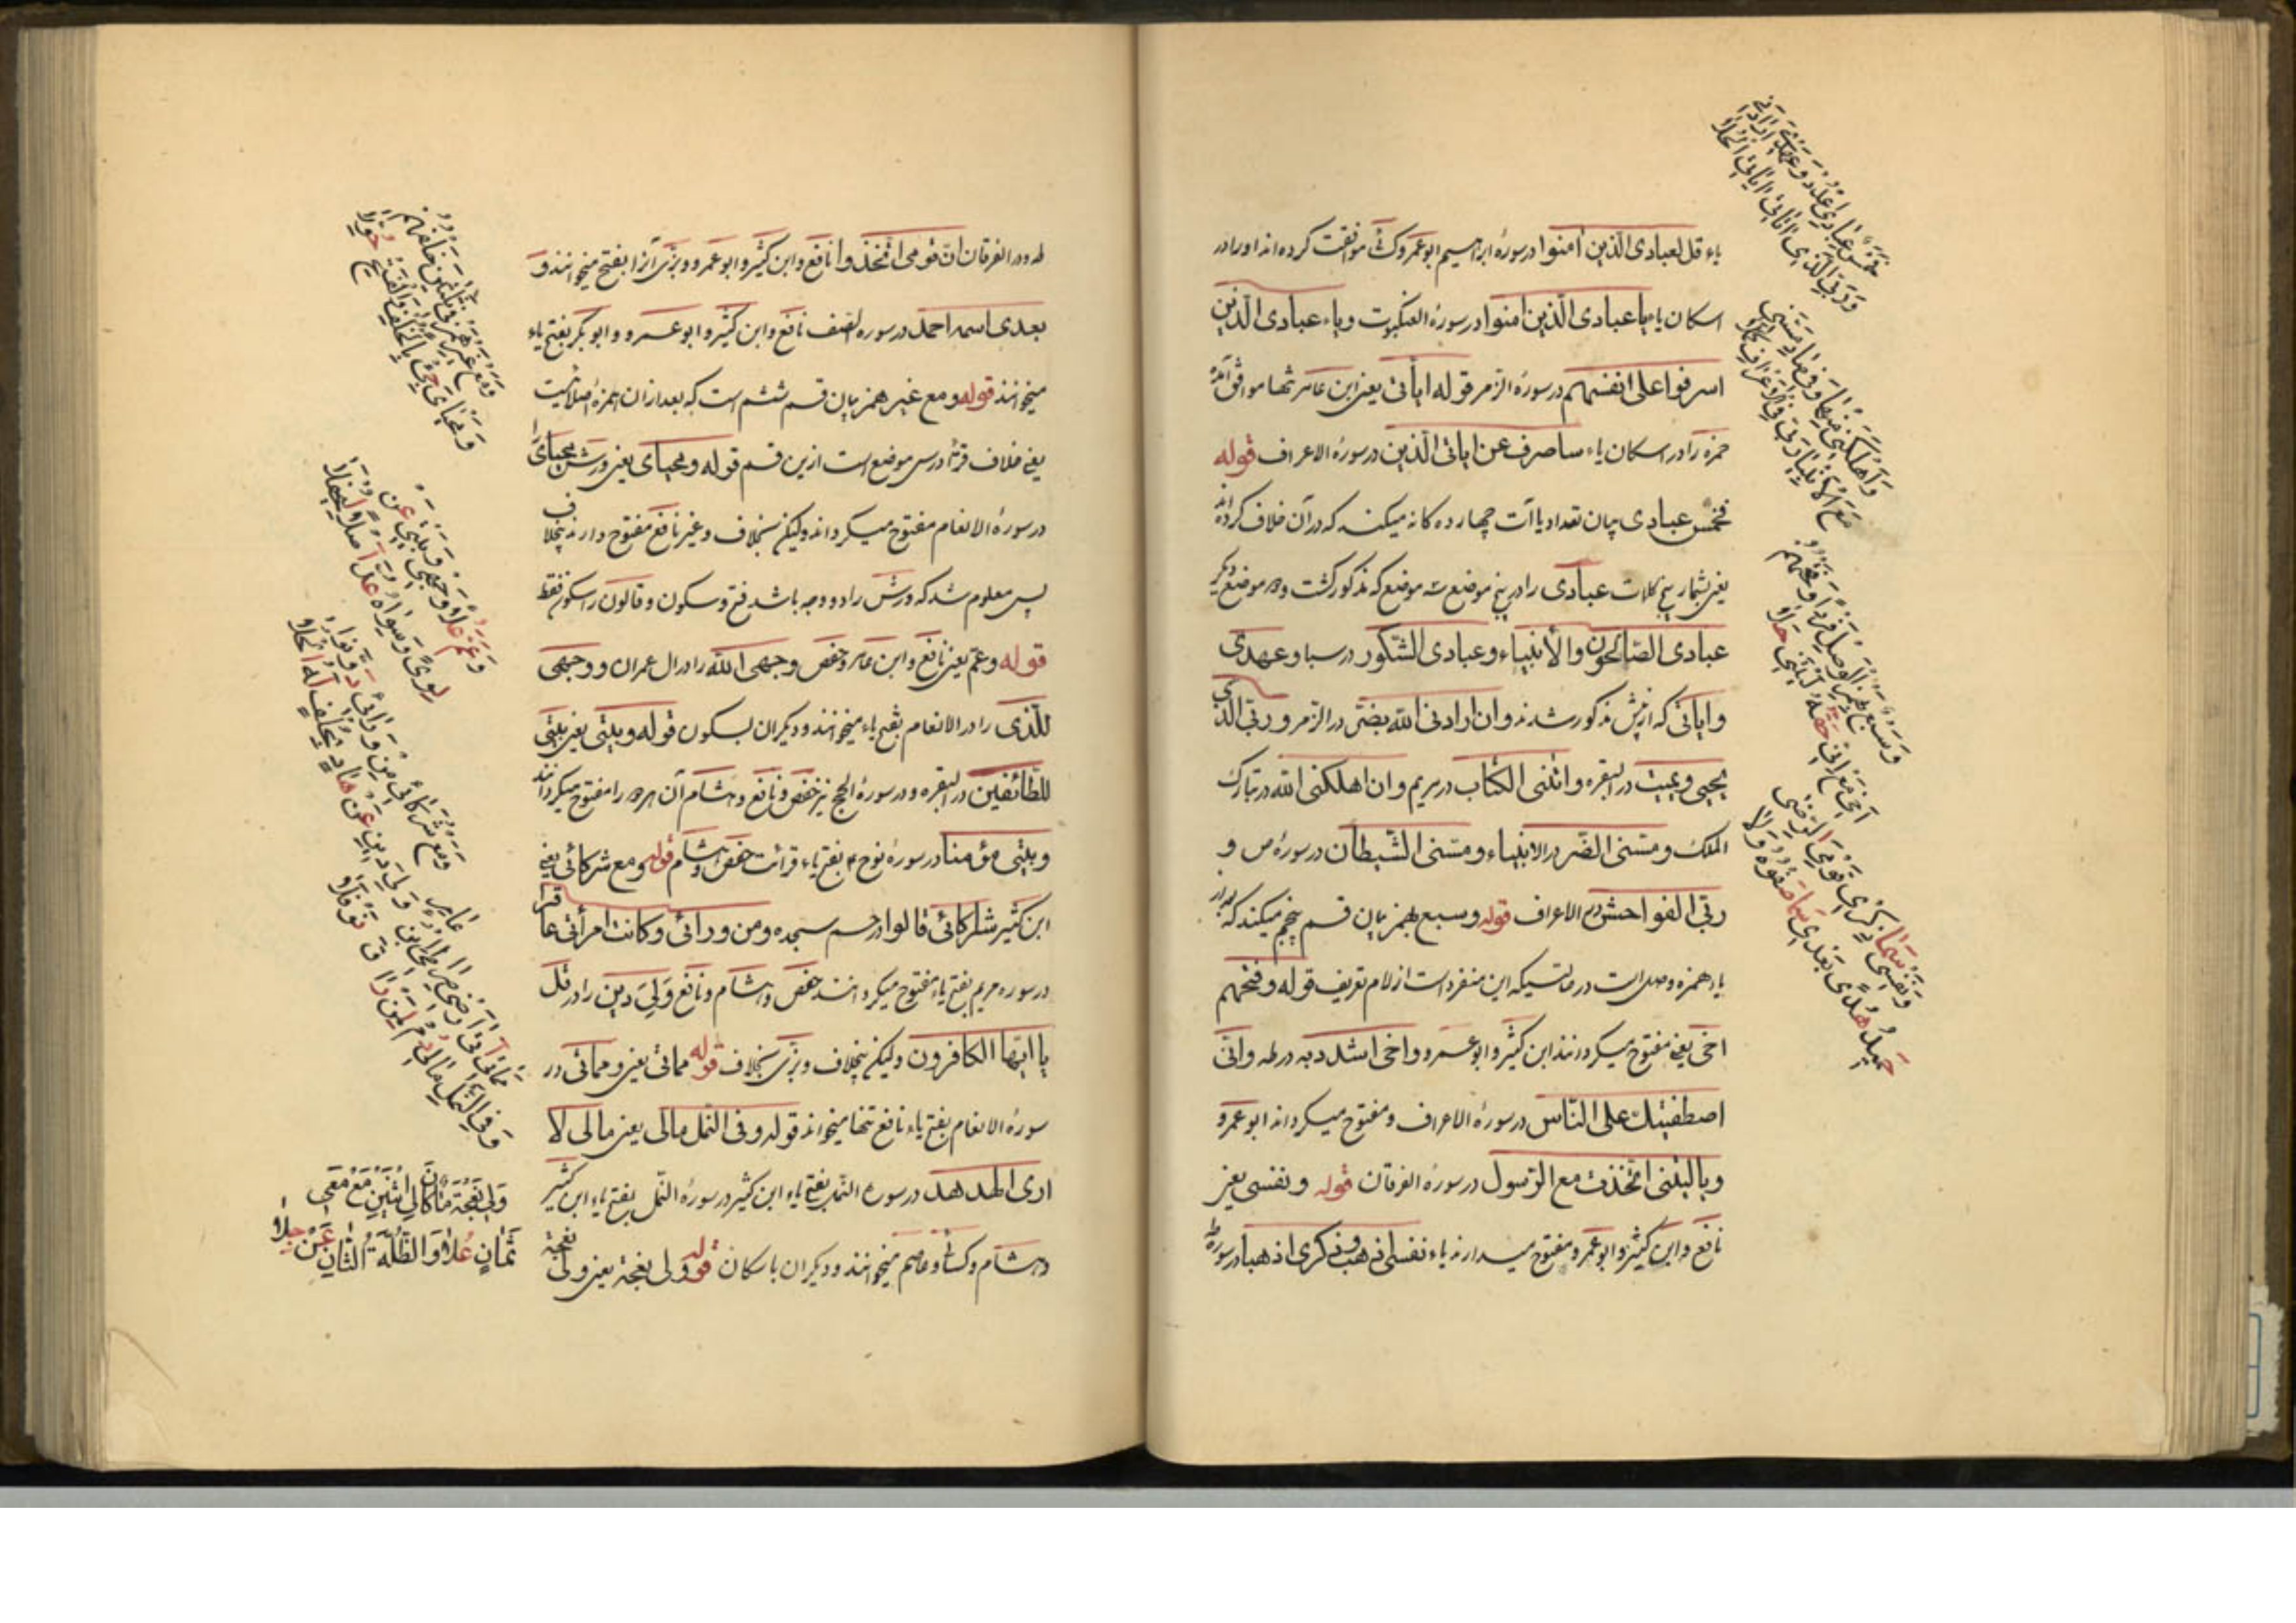 یاء قل لعبادی الذین امنوا در سورهٔ ابراهیم ابو عمرو و موافقت کرده‌اند او را در
اسکان یاء یا عبادی الذین امنوا در سورهٔ العنکبوت و یاء عبادی الذین
اسرفوا علی انفسهم در سورهٔ الزمر قوله ایاتی یعنی ابن عامر تنها موافق
حمزه را در اسکان یاء ساصرف عن ایاتی الذین در سورهٔ الاعراف قوله
فخمس عبادی بیان تعداد یاآت چهارده کانه میکند که در آن خلاف کرده‌اند
یعنی بشمار پنج کلمات عبادی را در پنج موضع سه موضع که مذکور گشت و دو موضع دیگر
عبادی الصالحون و الانبیاء و عبادی الشکور در سبا و عهدی
و ایاتی که از پیش مذکور شدند و ان ارادنی الله بضر در الزمر و ربی الذی
یحیی و یمیت در البقره و اتنی الکتاب در مریم و ان اهلکنی الله در تبارک
الملک و مسنی الضر در الانبیاء و مسنی الشیطان در سورهٔ ص و
ربی الفواحش در الاعراف قوله و سبع بهمز بیان قسم پنجم میکند که بعد از
یاء همزه وصل است در حالتیکه این منفرد است از لام تعریف قوله و فتحهم
اخی یعنی مفتوح میکردانند ابن کثیر و ابو عمرو و اخی اشدد به در طه و انی
اصطفیتک علی الناس در سورهٔ الاعراف و مفتوح میکرداند ابو عمرو
و یا لیتنی اتخذت مع الرسول در سورهٔ الفرقان قوله و نفسی یعنی
نافع و ابن کثیر و ابو عمرو مفتوح میدارند یاء نفسی اذهب و فی ذکری اذهبا در سورهٔ
فَخَمْسُ عِبَادِي اعْدُدْ وَعَهْدِي أَرَادَنِي
وَرَبِّي الَّذِي آتَانِي آيَاتِي الْحُلَا
وَأَهْلَكَنِي مِنْهَا وَفِي صَادَ مَسَّنِي
مَعَ الْأَنْبِيَا رَبِّي فِي الْأَعْرَافِ كَمَّلَا
وَسَبْعٌ بِهَمْزِ الْوَصْلِ فَرْدًا وَفَتْحُهُمْ
أَخِي مَعَ إِنِّي حَقُّهُ لَيْتَنِي حَلَا
وَنَفْسِي سَمَا ذِكْرِي سَمَا قَوْمِي الرِّضَى
حَمِيدُ هُدًى بَعْدِي سَمَا صَفْوُهُ وِلَا
طه و در الفرقان ان قومی اتخذوا نافع و ابن کثیر و ابو عمرو و بزی آنرا بفتح میخوانند و
بعدی اسمه احمد در سوره الصف نافع و ابن کثیر و ابو عمرو و ابو بکر بفتح یاء
میخوانند قوله و مع غیر همز بیان قسم ششم است که بعد از ان همزهٔ اصلا نیست
یعنی خلاف قرا در سی موضع است ازین قسم قوله و محیای یعنی ورش محیای
در سورهٔ الانعام مفتوح میکرداند ولیکن بخلاف و غیر نافع مفتوح دارند بخلاف
پس معلوم شد که ورش را دو وجه باشد فتح و سکون و قالون را سکون فقط
قوله و عم یعنی نافع و ابن عامر و حفص وجهی لله را در ال عمران و وجهی
للذی را در الانعام بفتح یاء میخوانند و دیکران بسکون قوله و بیتی یعنی بیتی
للطائفین در البقره و در سورهٔ الحج نیز حفص و نافع و هشام آن هر دو را مفتوح میکردانند
و بیتی مؤمنا در سورهٔ نوح ۴ بفتح یاء قرائت حفص و هشام قوله و مع شرکائی یعنی
ابن کثیر شرکائی قالوا در حم سجده و من ورائی و کانت امرأتی عاقرا
در سوره مریم بفتح یاء مفتوح میکردانند حفص و هشام و نافع و لی دین را در قل
یا ایها الکافرون ولیکن بخلاف و بزی بخلاف قوله مماتی یعنی و مماتی در
سورهٔ الانعام بفتح یاء نافع تنها میخواند قوله و فی النمل مالی یعنی مالی لا
اری الهدهد در سوره النمل بفتح یاء ابن کثیر در سورهٔ النمل بفتح یاء ابن کثیر
و هشام و کسائی و عاصم میخوانند و دیکران باسکان قوله ولی نعجة یعنی ولی نعجة
وَمَعْ غَيْرِ هَمْزٍ فِي ثَلَاثِينَ خُلْفُهُمْ
وَمَحْيَايَ جِئْ بِالْخُلْفِ وَالْفَتْحُ خُوِّلَا
وَعَمَّ عُلًا وَجْهِي وَبَيْتِي بِنُوحٍ عَنْ
لِوًى وَسِوَاهُ عُدَّ أَصْلًا لِيُحْفَلَا
وَمَعْ شُرَكَائِي مِنْ وَرَائِي دَوَّنُوا
وَلِي دِينِ عَنْ هَادٍ بِخُلْفٍ لَهُ الْحُلَا
مَمَاتِي أَتَى أَرْضِي صِرَاطِي ابْنُ عَامِرٍ
وَفِي النَّمْلِ مَالِي دُمْ لِمَنْ رَاقَ نَوْفَلَا
وَلِي نَعْجَةٌ مَا كَانَ لِي اثْنَيْنِ مَعْ مَعِي
ثَمَانٍ عُلًا وَالظُّلَّةُ الثَّانِ عَنْ جِلَا